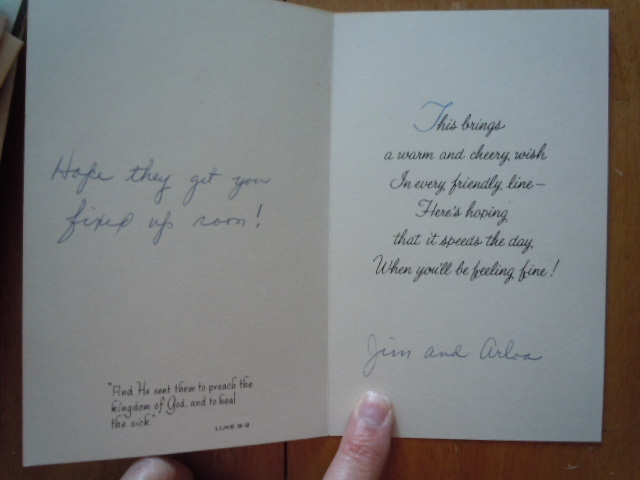 Hope they get you
fixed up soon!
"And He sent them to preach the
kingdom of God, and to heal
the sick"
LUKE 9:2
This brings
a warm and cheery wish
In every friendly line—
Here's hoping
that it speeds the day
When you'll be feeling fine!
Jim and Arloa